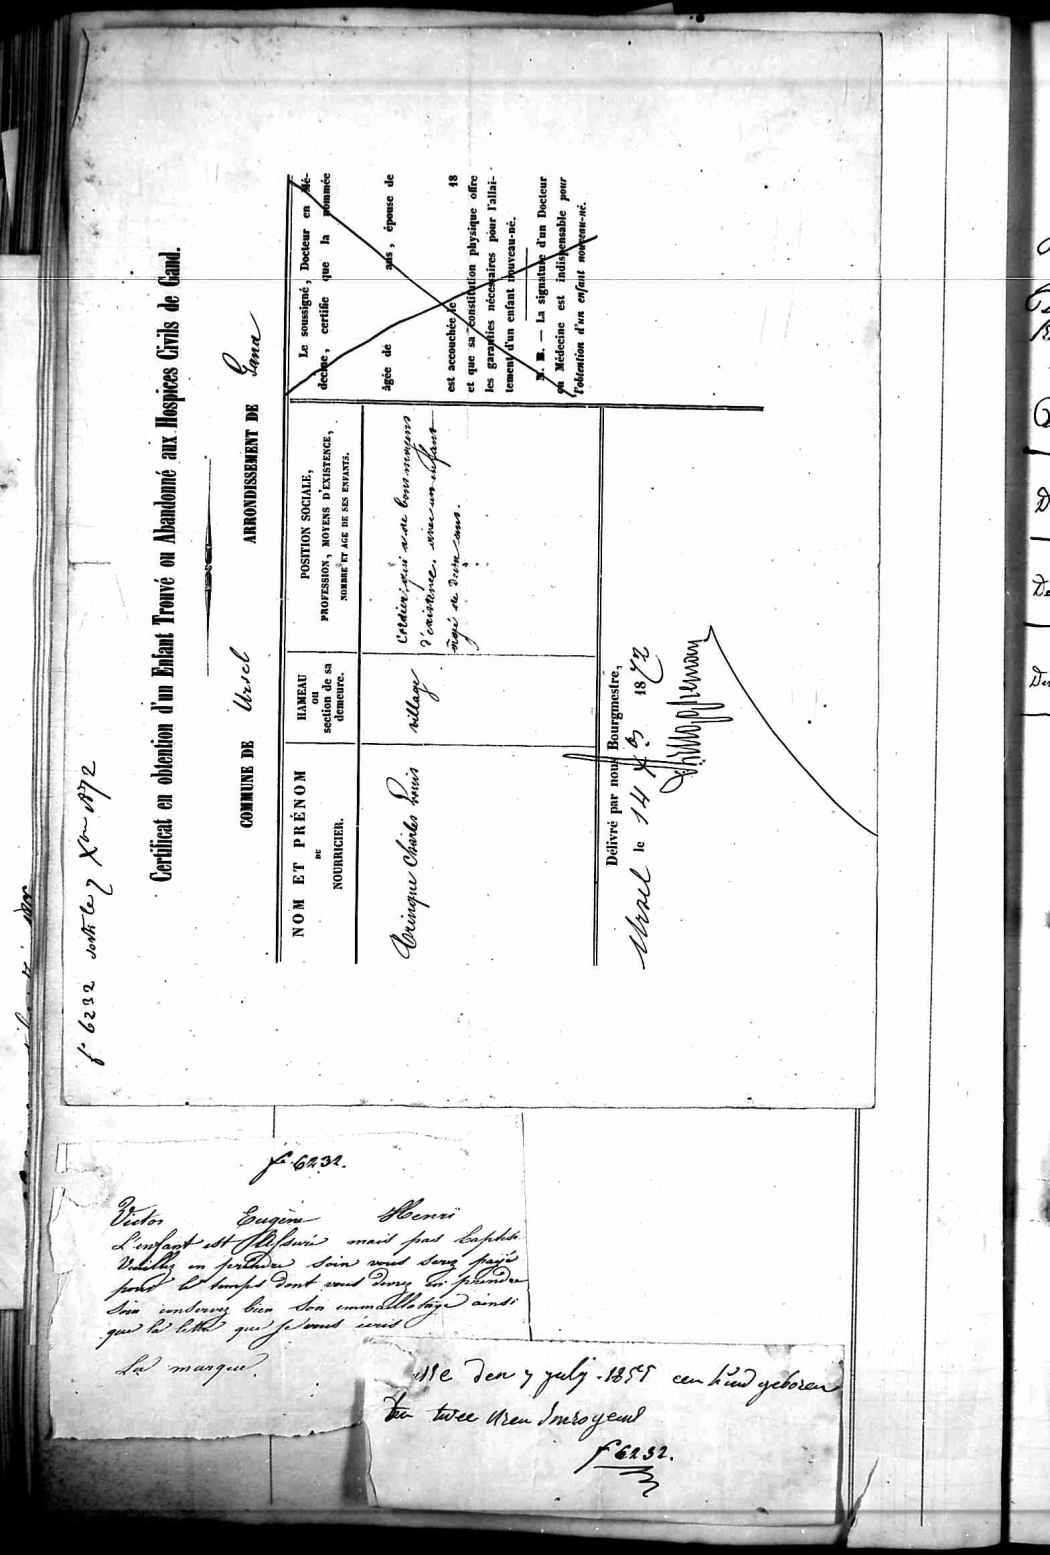 fo 6232 sorti le 7 Xbre 1872
Certificat en obtention d'un Enfant Trouvé ou Abandonné aux Hospices Civils de Gand.
COMMUNE DE Ursel ARRONDISSEMENT DE Gand
NOM ET PRÉNOM
DU
NOURRICIER.
HAMEAU
OU
section de sa
demeure.
POSITION SOCIALE,
PROFESSION, MOYENS D'EXISTENCE,
NOMBRE ET AGE DE SES ENFANTS.
Charles Louis
village
Cordier, qui a de bons moyens
d'existence, avec un enfant
âgé de onze ans.
Le soussigné, Docteur en Mé-
decine, certifie que la nommée
âgée de ans, épouse de
est accouchée le 18
et que sa constitution physique offre
les garanties nécessaires pour l'allai-
tement d'un enfant nouveau-né.
N. B. — La signature d'un Docteur
en Médecine est indispensable pour
l'obtention d'un enfant nouveau-né.
Délivré par nous Bourgmestre,
Ursel le 14 1872
fo 6232.
Victor Eugène Henri
L'enfant est mais pas baptisé
Veuillez en prendre soin vous serez payé
pour le temps dont vous devez en prendre
soin conservez bien son emmaillotage ainsi
que la lettre que je vous écris
La marque.
den 7 july 1855 een kind geboren
ten twee uren
fo 6232.